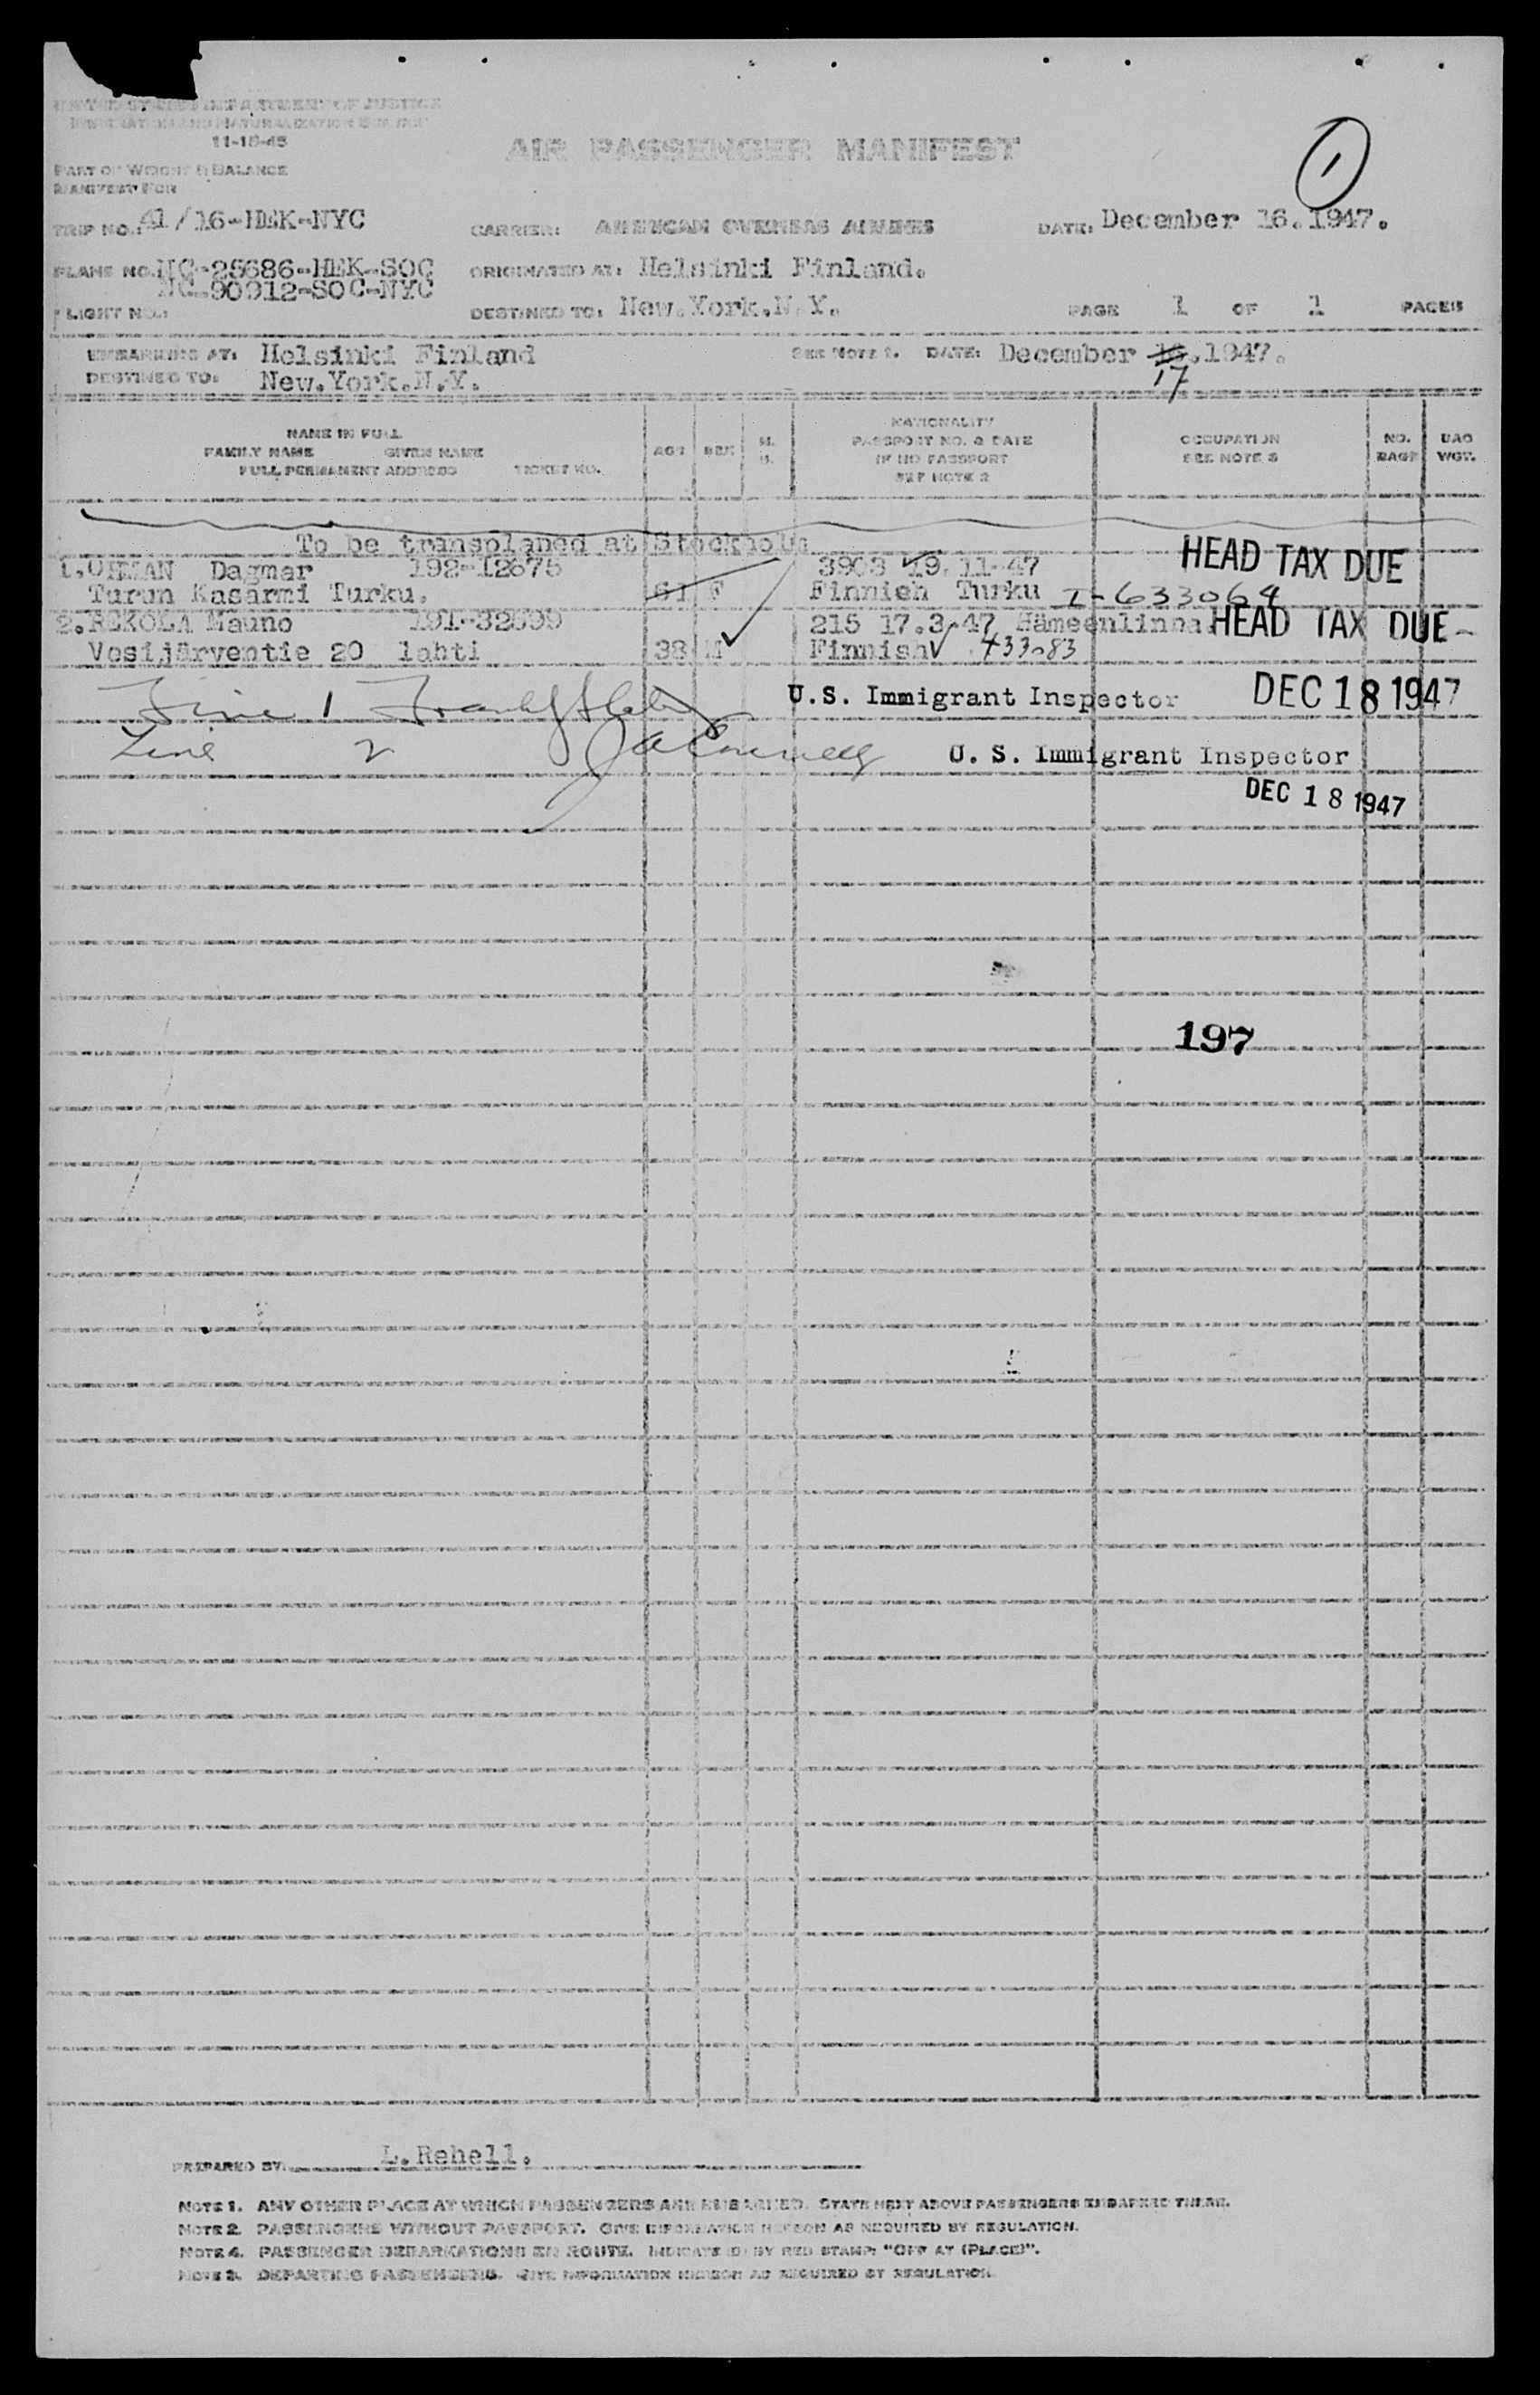 UNITED STATES DEPARTMENT OF JUSTICE
IMMIGRATION AND NATURALIZATION SERVICE
11-18-45
AIR PASSENGER MANIFEST
1
PART OF WEIGHT & BALANCE
MANIFEST FOR
TRIP NO.: 41/16-HEK-NYC CARRIER: AMERICAN OVERSEAS AIRLINES DATE: December 16.1947.
PLANE NO. NC-25686-HEK-SOC ORIGINATED AT: Helsinki Finland.
NC-90912-SOC-NYC
FLIGHT NO.: DESTINED TO: New.York.N.Y. PAGE 1 OF 1 PAGES
EMBARKING AT: Helsinki Finland SEE NOTE 1. DATE: December 16.1947.
DESTINED TO: New.York.N.Y. 17
NAME IN FULL
FAMILY NAME GIVEN NAME
FULL PERMANENT ADDRESS TICKET NO.
AGE SEX M. S.
NATIONALITY
PASSPORT NO. & DATE
IF NO PASSPORT
SEE NOTE 2
OCCUPATION
SEE NOTE 3
NO. BAGS
BAG WGT.
To be transplaned at Stockholm
1.OHMAN Dagmar 192-12675 3903 19.11.47 HEAD TAX DUE
Turun Kasarmi Turku. 61 F Finnish Turku I-633064
2.REKOLA Mauno 191-32699 215 17.3.47 Hämeenlinna. HEAD TAX DUE-
Vesijärventie 20 lahti 38 M Finnish 433083
Line 1 U.S. Immigrant Inspector DEC 18 1947
Line 2 U. S. Immigrant Inspector
DEC 18 1947
197
PREPARED BY: L.Rehell.
NOTE 1. ANY OTHER PLACE AT WHICH PASSENGERS ARE EMBARKED. STATE NEXT ABOVE PASSENGERS EMBARKED THERE.
NOTE 2. PASSENGERS WITHOUT PASSPORT. GIVE INFORMATION HEREON AS REQUIRED BY REGULATION.
NOTE 4. PASSENGER DEBARKATIONS EN ROUTE. INDICATED BY RED STAMP: "OFF AT (PLACE)".
NOTE 3. DEPARTING PASSENGERS. GIVE INFORMATION HEREON AS REQUIRED BY REGULATION.